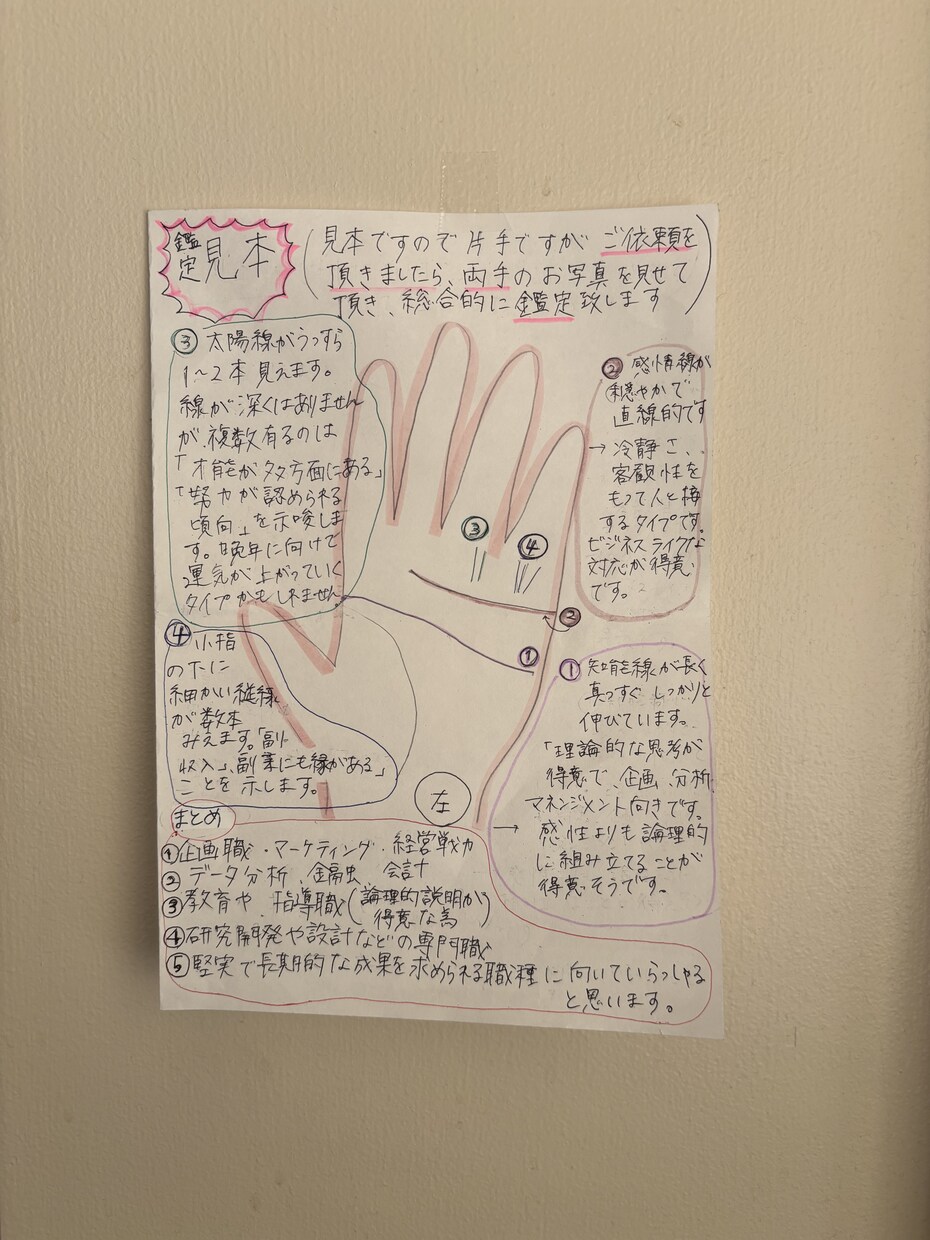 鑑定見本
見本ですので片手ですが ご依頼を
頂きましたら、両手のお写真を見せて
頂き、総合的に鑑定致します
③ 太陽線がうっすら
1〜2本見えます。
線が深くはありません
が、複数有るのは
「才能が多方面にある」
「努力が認められる
傾向」を示唆しま
す。晩年に向けて
運気が上がっていく
タイプかもしれません
② 感情線が
穏やかで
直線的です
→ 冷静さ、
客観性を
もって人と接
するタイプです。
ビジネスライクな
対応が得意
です。
③
④
②
①
④ 小指
の下に
細かい縦線
が数本
みえます。「副
収入」、副業にも縁がある」
ことを示します。
① 知能線が長く
真っすぐ しっかりと
伸びています。
「理論的な思考が
得意で、企画、分析
マネンジメント向きです。
→ 感性よりも論理的
に組み立てることが
得意そうです。
左
まとめ
①企画職・マーケティング・経営戦力
②データ分析、金融、会計
③教育や、指導職(論理的説明が
得意な為)
④研究開発や設計などの専門職
⑤堅実で長期的な成果を求められる職種に向いていらっしゃる
と思います。